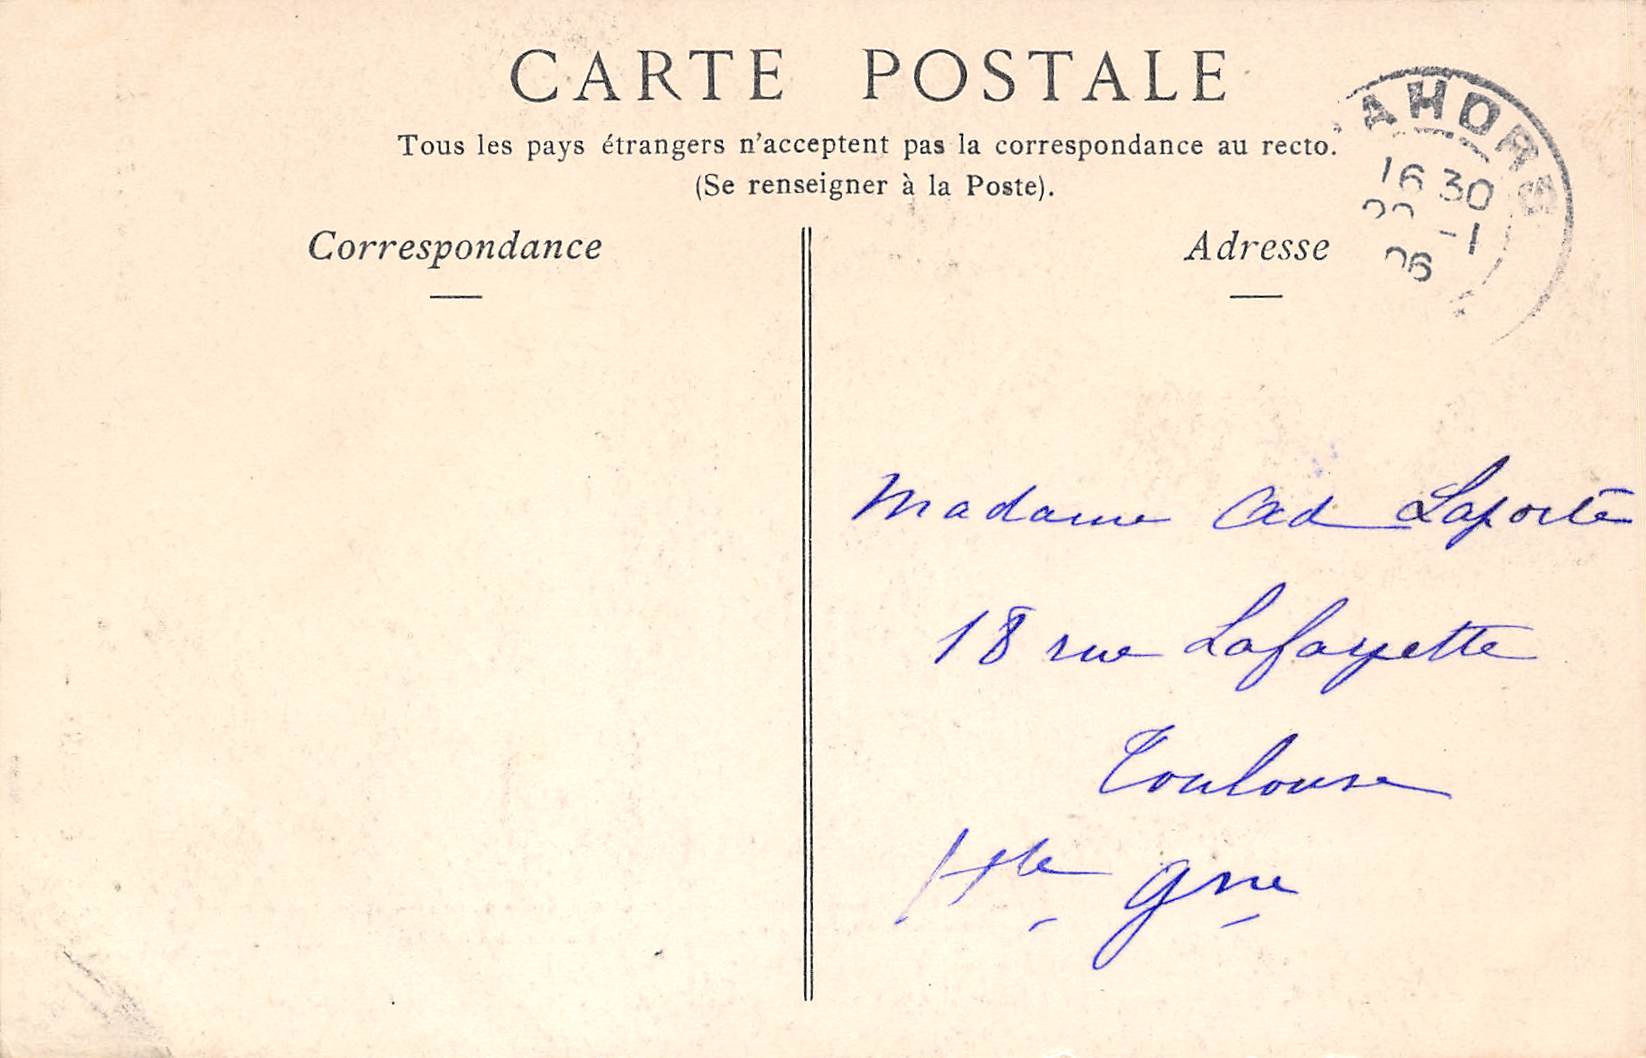 CARTE POSTALE
Tous les pays étrangers n'acceptent pas la correspondance au recto.
(Se renseigner à la Poste).
Correspondance
Adresse
AHORS
16 30
-1
06
Madame Ad Laporte
18 rue Lafayette
Toulouse
Hte Gne